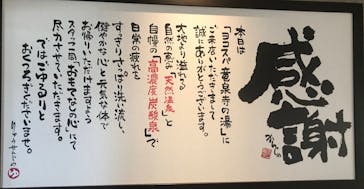 感謝
かんしゃ
本日は
「ヨコスパ 竜泉寺の湯」に
ご来店いただきまして
誠にありがとうございます。
大地より溢れる
自然の恵み「天然温泉」と
自慢の「高濃度炭酸泉」で
日常の疲れを
すっきりさっぱり洗い流し、
健やかな心と元気な体で
お帰りいただけますよう
スタッフ一同「おもてなしの心」にて
尽力させていただきます。
ではごゆるりと
おくつろぎくださいませ。
りゅうせんじのゆ